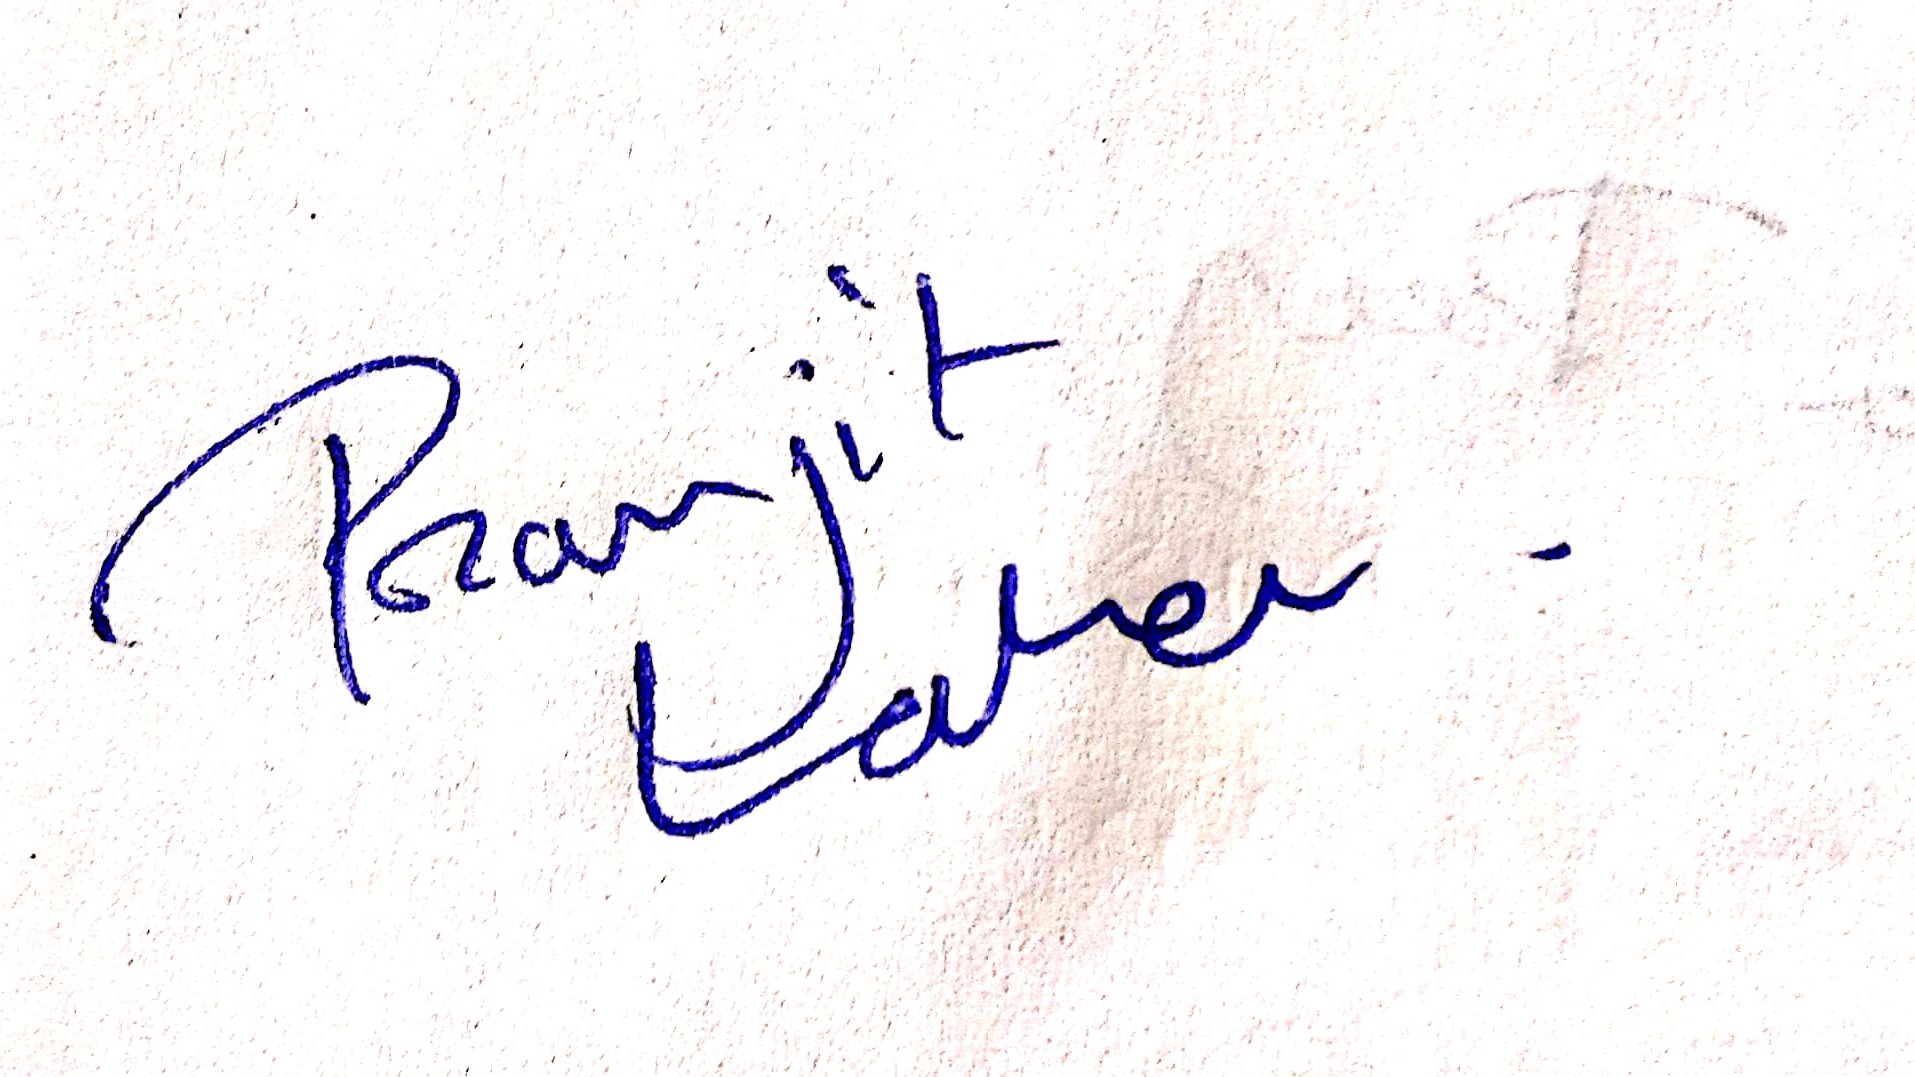 Pranjit
Laker